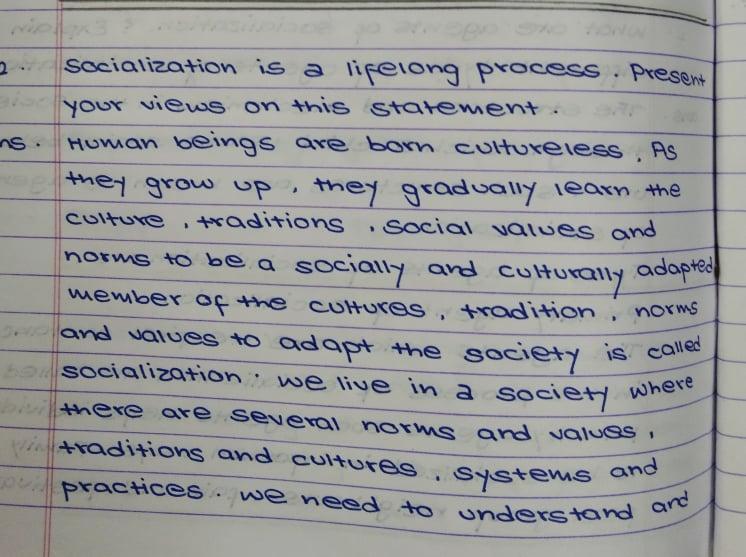 2. socialization is a lifelong process. Present
your views on this statement.
ns. Human beings are born cultureless. As
they grow up, they gradually learn the
culture, traditions, social values and
norms to be a socially and culturally adapted
member of the cultures, tradition, norms
and values to adapt the society is called
socialization. we live in a society where
there are several norms and values,
traditions and cultures, systems and
practices. we need to understand and